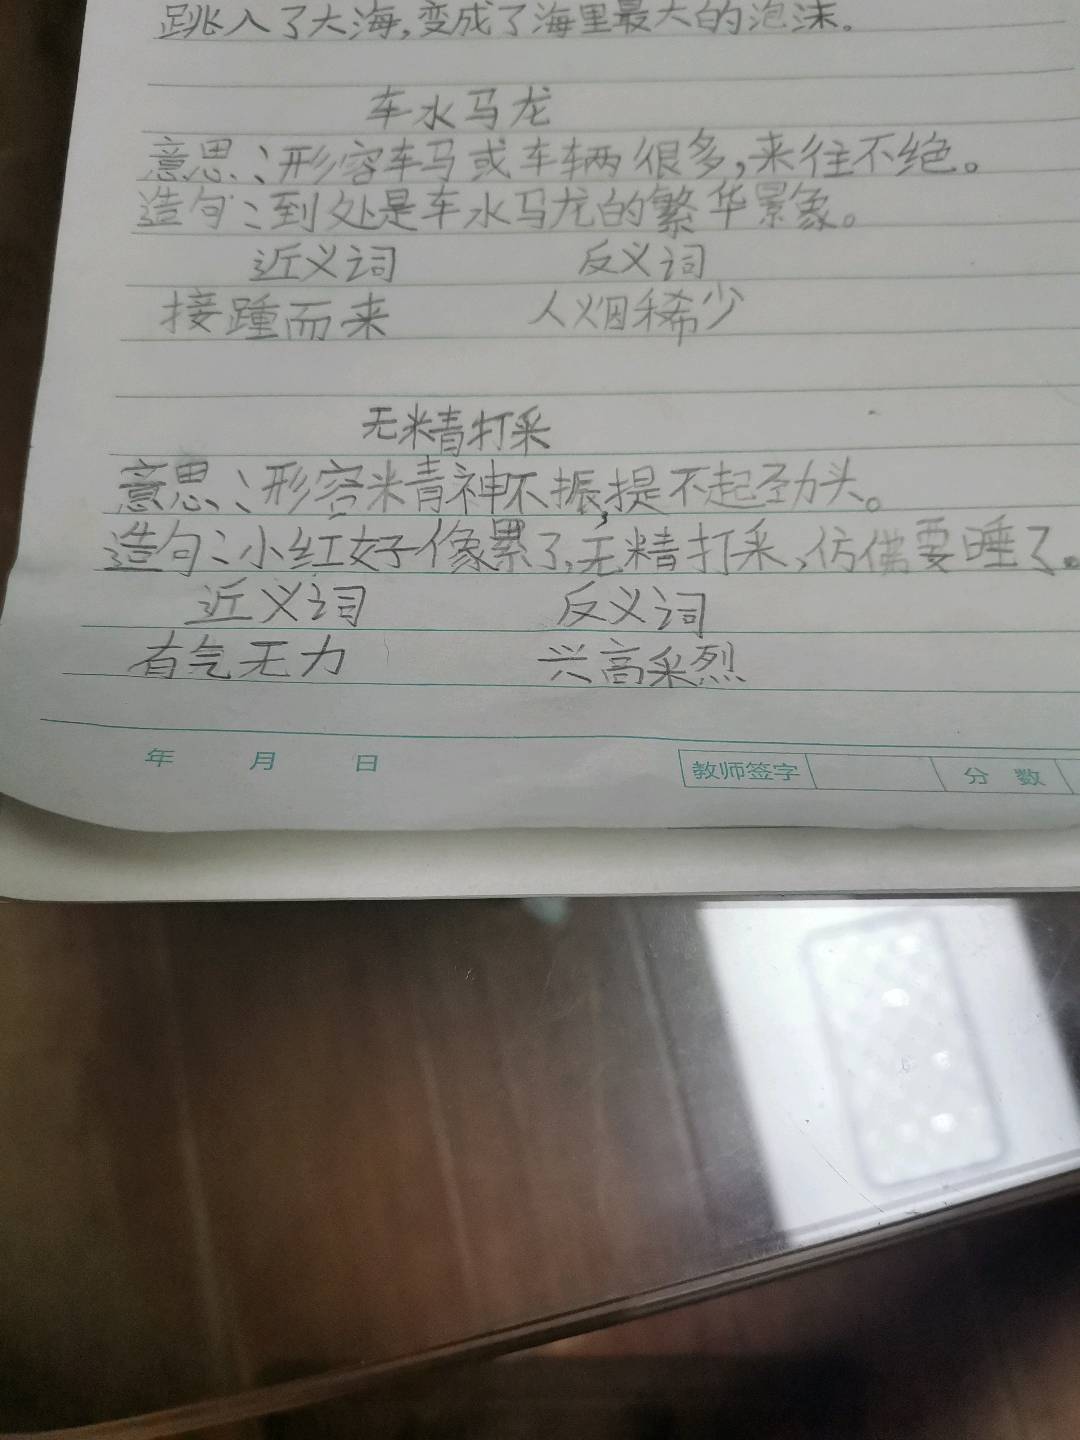 跳入了大海,变成了海里最大的泡沫。
车水马龙
意思:形容车马或车辆很多,来往不绝。
造句:到处是车水马龙的繁华景象。
近义词 反义词
接踵而来 人烟稀少
无精打采
意思:形容精神不振,提不起劲头。
造句:小红好像累了,无精打采,仿佛要睡了。
近义词 反义词
有气无力 兴高采烈
年 月 日 教师签字 分 数